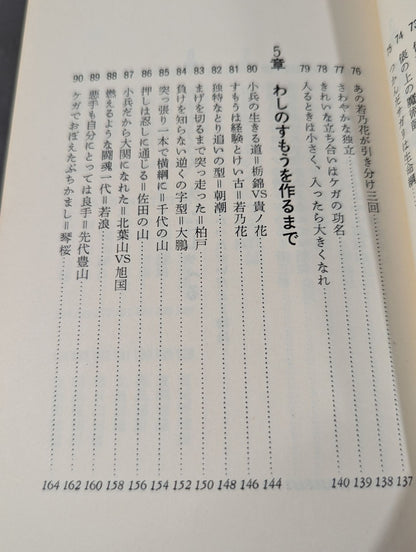 76 あの若乃花が引き分け三回 137
77 さわやかな独立 138
78 きれいな立ち合いはケガの功名 139
79 入るときは小さく、入ったら大きくなれ 140
5章 わしのすもうを作るまで
80 小兵の生きる道＝栃錦VS貴ノ花 144
81 すもうは経験とけい古＝若乃花 146
82 独特なとり追いの型＝朝潮 148
83 まげを切るまで突っ走った＝柏戸 150
84 負けを知らない逆くの字型＝大鵬 152
85 突っ張り一本で横綱に＝千代の山 154
86 押しは忍しに通じる＝佐田の山 156
87 小兵だから大関になれた＝北葉山VS旭国 158
88 燃えるような闘魂一代＝若浪 160
89 悪手も自分にとっては良手＝先代豊山 162
90 ケガでおぼえたぶちかまし＝琴桜 164